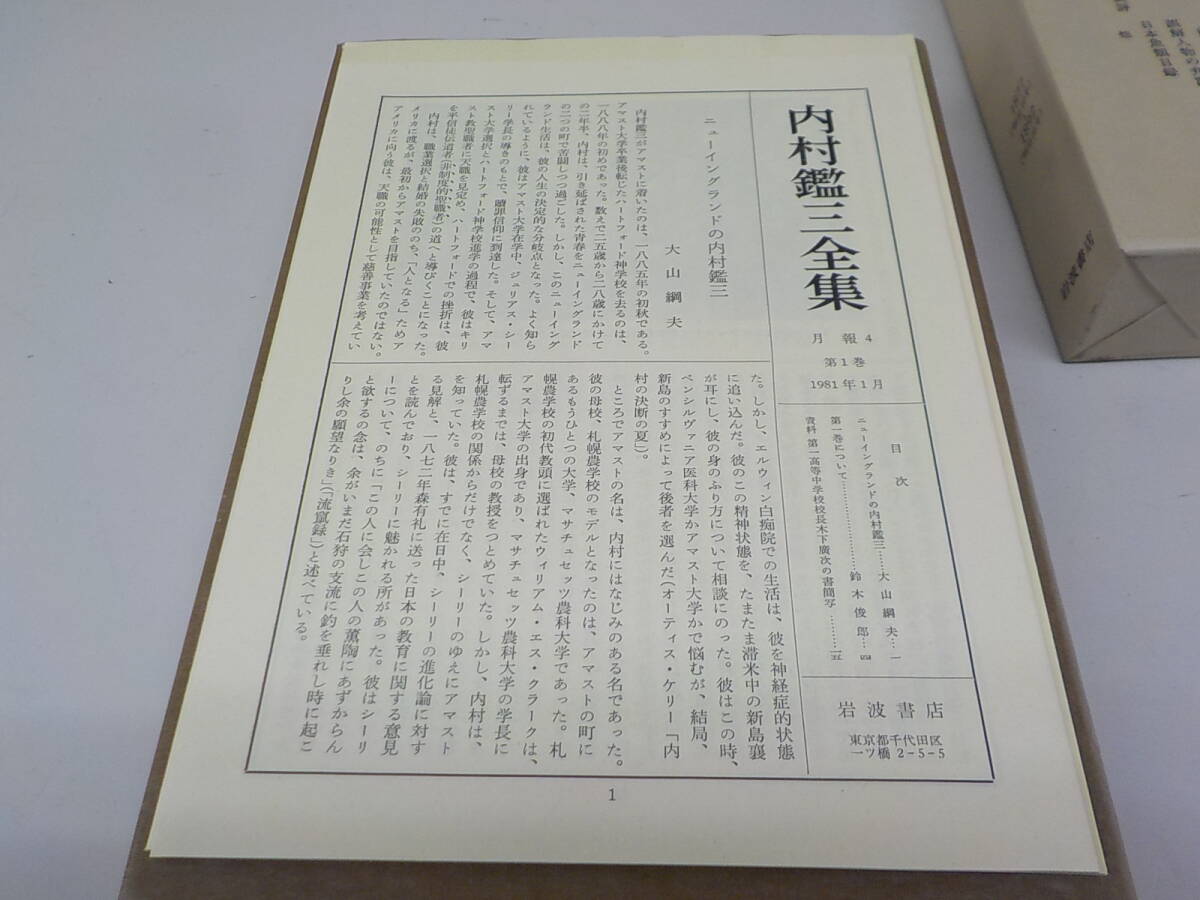 内村鑑三全集
月報4
第1巻
1981年1月
目次
ニューイングランドの内村鑑三……大山綱夫…一
第一巻について……………………鈴木俊郎…四
資料 第一高等中学校校長木下廣次の書簡写………一五
岩波書店
東京都千代田区
一ツ橋2-5-5
ニューイングランドの内村鑑三
大山綱夫
内村鑑三がアマストに着いたのは、一八八五年の初秋である。
アマスト大学卒業後転じたハートフォード神学校を去るのは、
一八八八年の初めであった。数えで二五歳から二八歳にかけて
の二年半、内村は、引き延ばされた青春をニューイングランド
の二つの町で苦闘しつつ過ごした。しかし、このニューイング
ランド生活は、彼の人生の決定的な分岐点となった。よく知ら
れているように、彼はアマスト大学在学中、ジュリアス・シー
リー学長の導きのもとで、贖罪信仰に到達した。そして、アマ
スト大学選択とハートフォード神学校進学の過程で、彼はキリ
スト教聖職者に天職を見定め、ハートフォードでの挫折は、彼
を平信徒伝道者(非制度的聖職者)の道へと導びくことになった。
内村は、職業選択と結婚の失敗ののち、「人となる」ためア
メリカに渡るが、最初からアマストを目指していたのではない。
アメリカに向う彼は、天職の可能性として慈善事業を考えてい
た。しかし、エルウィン白痴院での生活は、彼を神経症的状態
に追い込んだ。彼のこの精神状態を、たまたま滞米中の新島襄
が耳にし、彼の身のふり方について相談にのった。彼はこの時、
ペンシルヴァニア医科大学かアマスト大学かで悩むが、結局、
新島のすすめによって後者を選んだ(オーティス・ケリー「内
村の決断の夏」)。
ところでアマストの名は、内村にはなじみのある名であった。
彼の母校、札幌農学校のモデルとなったのは、アマストの町に
あるもうひとつの大学、マサチュセッツ農科大学であった。札
幌農学校の初代教頭に選ばれたウィリアム・エス・クラークは、
アマスト大学の出身であり、マサチュセッツ農科大学の学長に
転ずるまでは、母校の教授をつとめていた。しかし、内村は、
札幌農学校の関係からだけでなく、シーリーのゆえにアマスト
を知っていた。彼は、すでに在日中、シーリーの進化論に対す
る見解と、一八七二年森有礼に送った日本の教育に関する意見
とを読んでおり、シーリーに魅かれる所があった。彼はシーリ
ーについて、のちに「この人に会しこの人の薫陶にあずからん
と欲するの念は、余がいまだ石狩の支流に釣を垂れし時に起こ
りし余の願望なりき」(「流竄録」)と述べている。
1
日本魚類目録